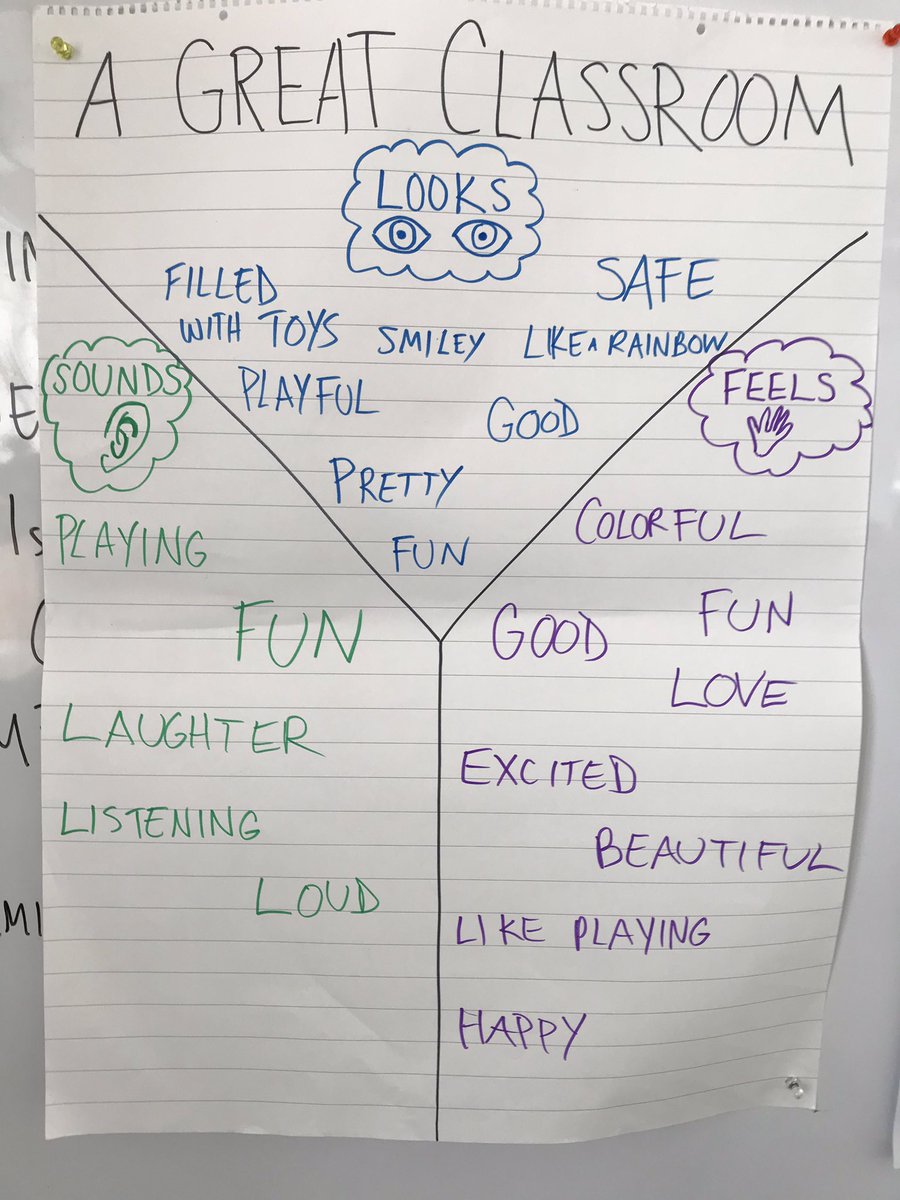 A GREAT CLASSROOM
LOOKS
FILLED
WITH TOYS
SMILEY
LIKE A RAINBOW
SAFE
PLAYFUL
GOOD
PRETTY
FUN
SOUNDS
PLAYING
FUN
LAUGHTER
LISTENING
LOUD
FEELS
COLORFUL
FUN
GOOD
LOVE
EXCITED
BEAUTIFUL
LIKE PLAYING
HAPPY